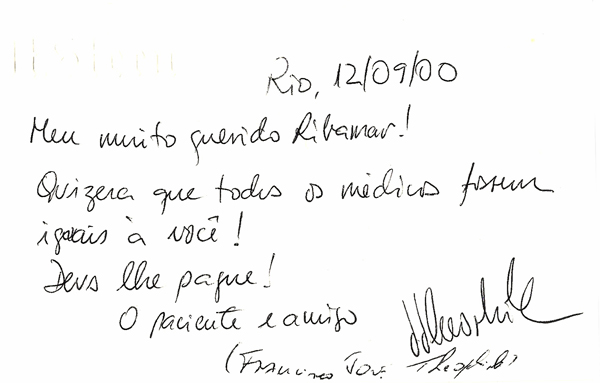 Rio, 12/09/00
Meu muito querido Ribamar!
Quizera que todos os médicos fossem
iguais à você!
Deus lhe pague!
O paciente e amigo
(Francisco José Theophilo)